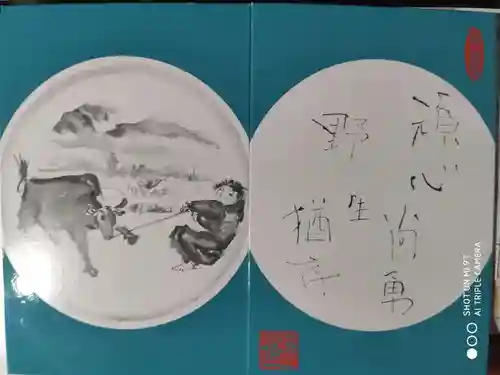 頑心
尚勇
野性
猶存
SHOT ON MI 9T
AI TRIPLE CAMERA